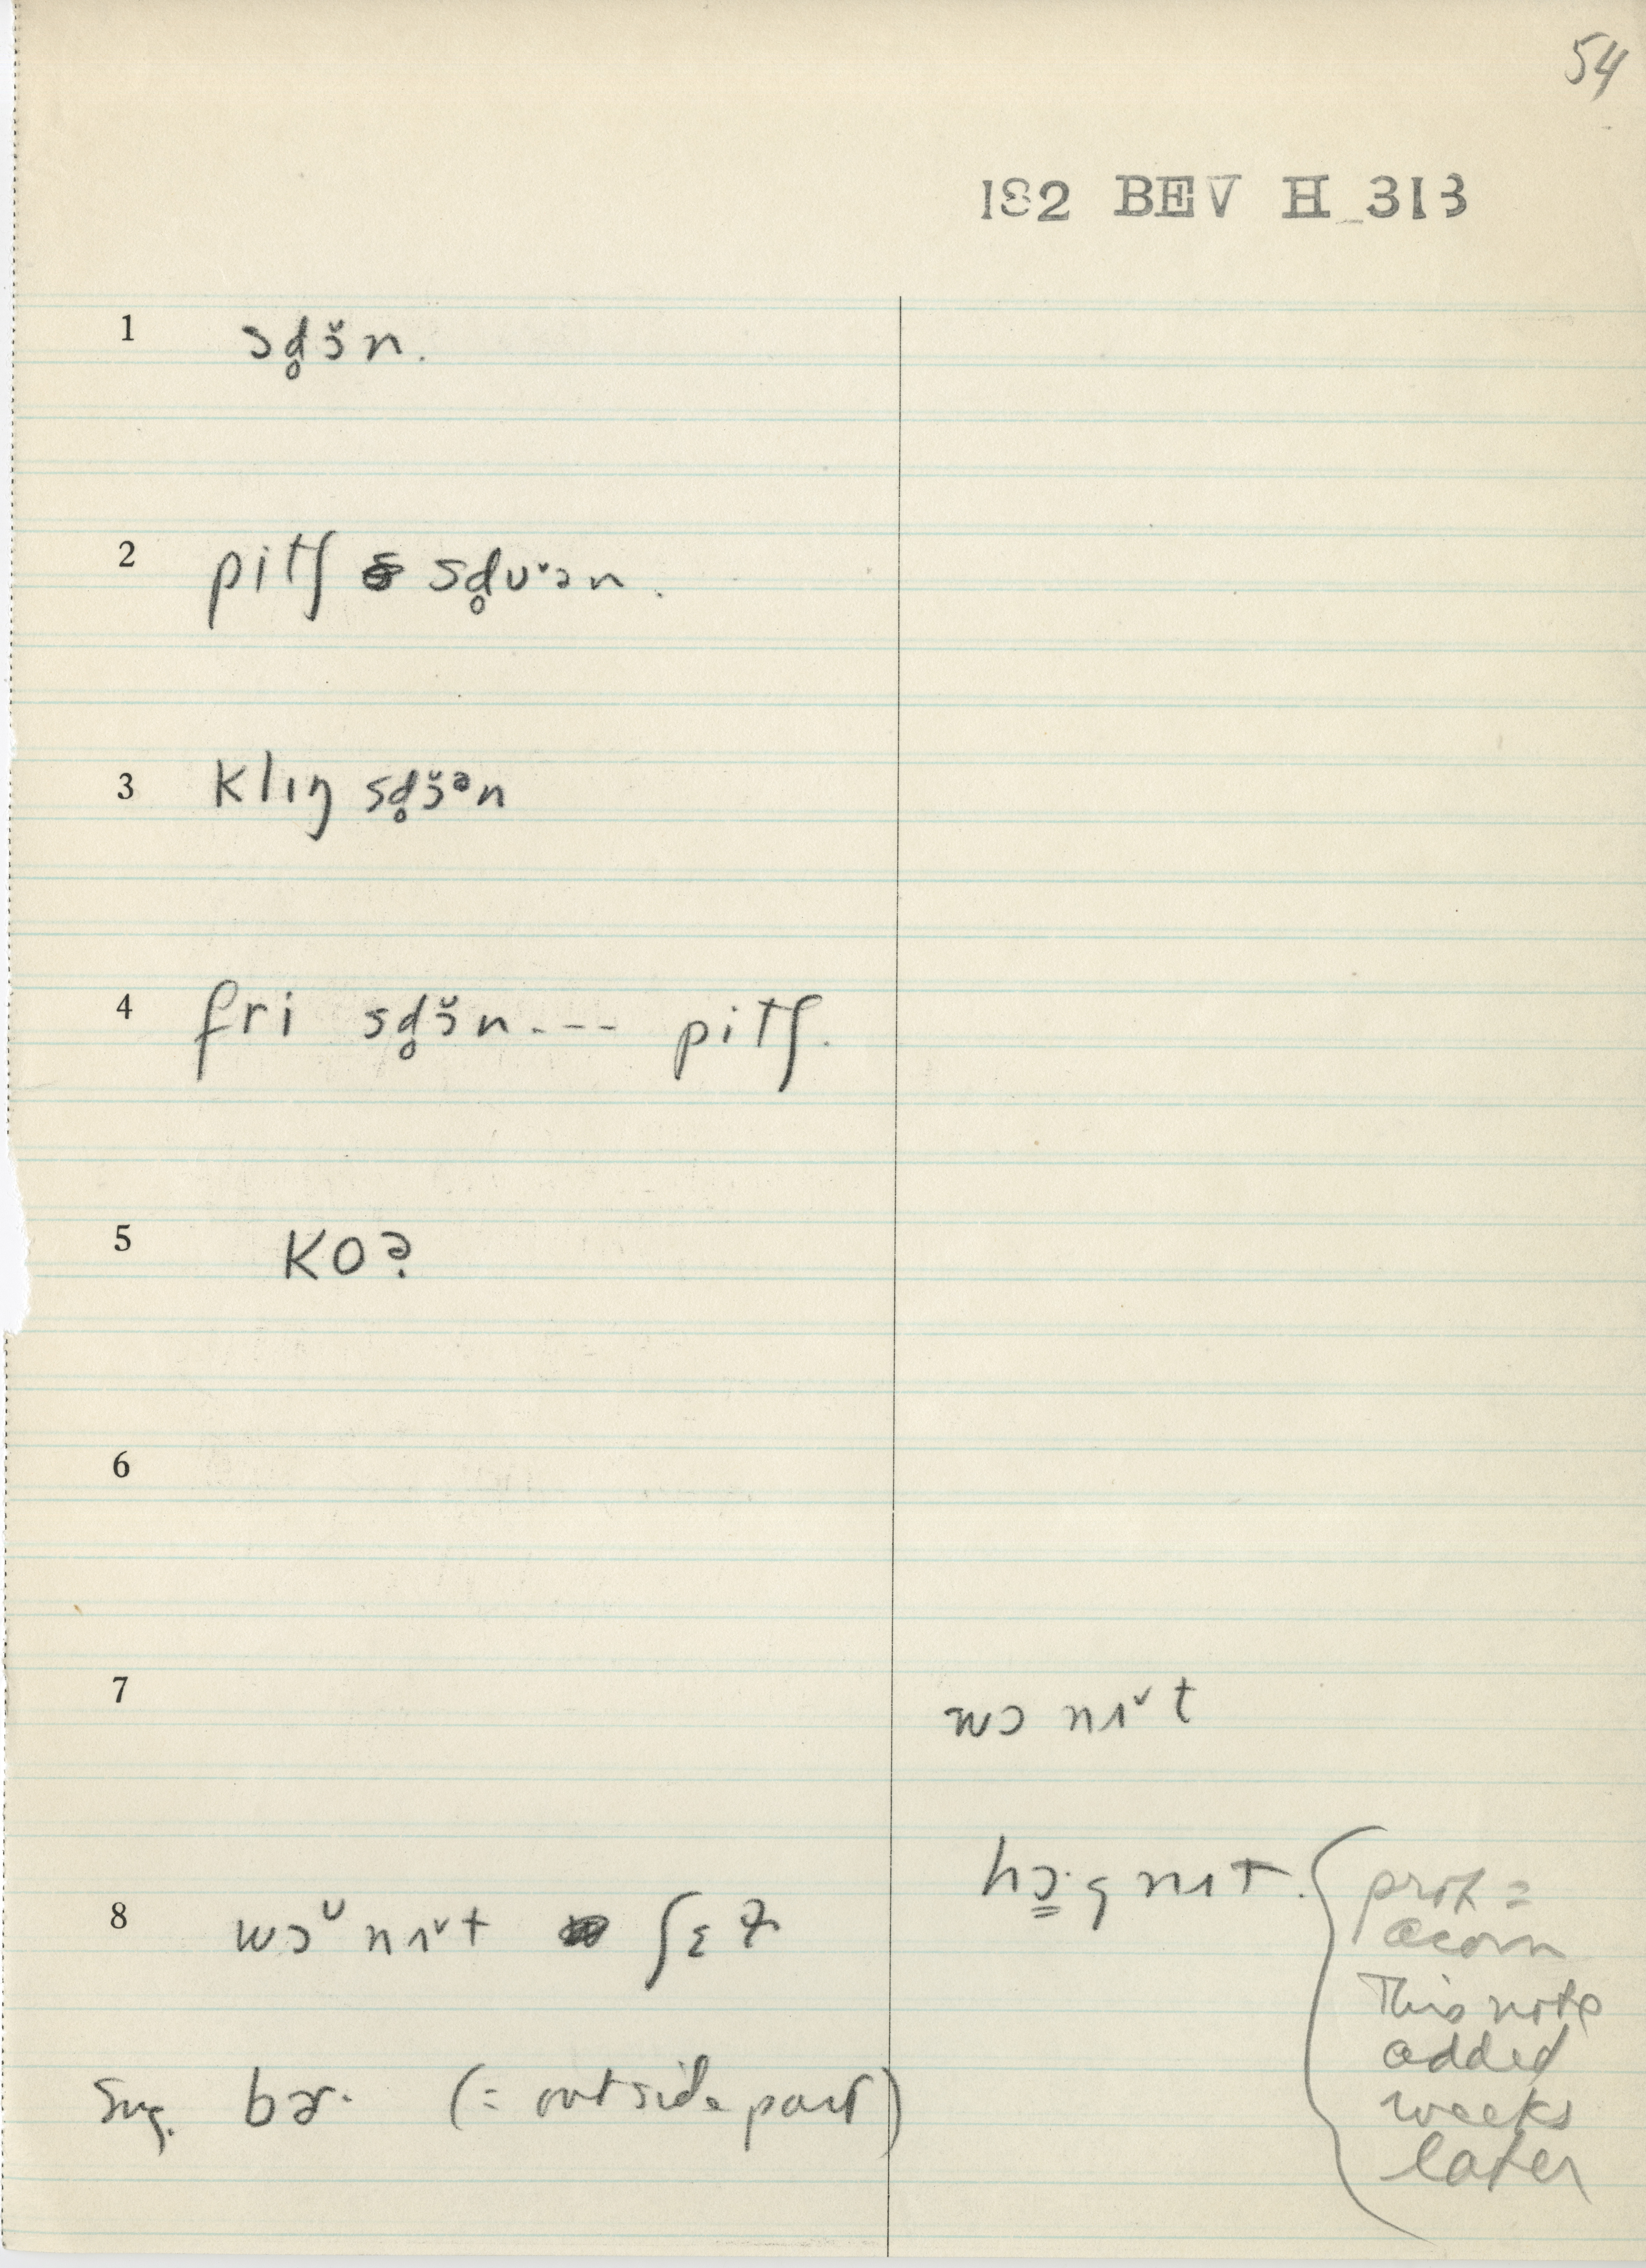 54
182 BEV H 313
1 sd̥ɔ̆n.
2 pitʃ sd̥ʊ̆ən.
3 klɪŋ sd̥ɔ̆ᵊn
4 fri sd̥ɔ̆n.--- pitʃ.
5 KO?
6
7 wɔ nɪ˅t
8 wɔ̆ nɪ˅t ʃɛɫ
hɔ̳·g nɪt.
prob =
acorn
This note
added
weeks
later
Sug. bɚ· (= outside part)